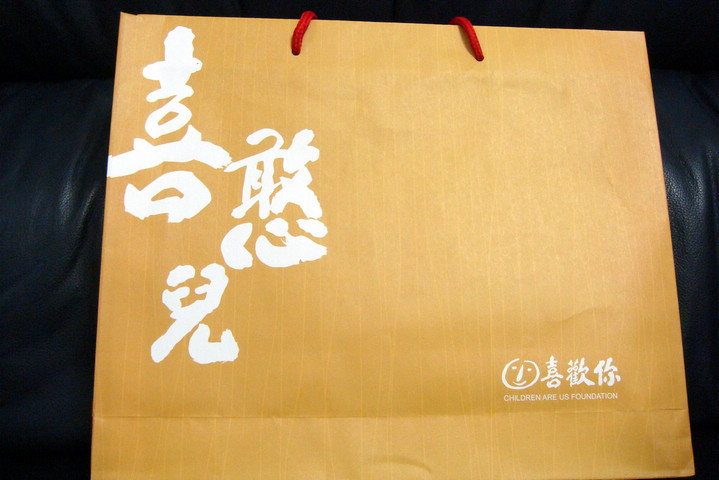 喜
憨
兒
喜歡你
CHILDREN ARE US FOUNDATION